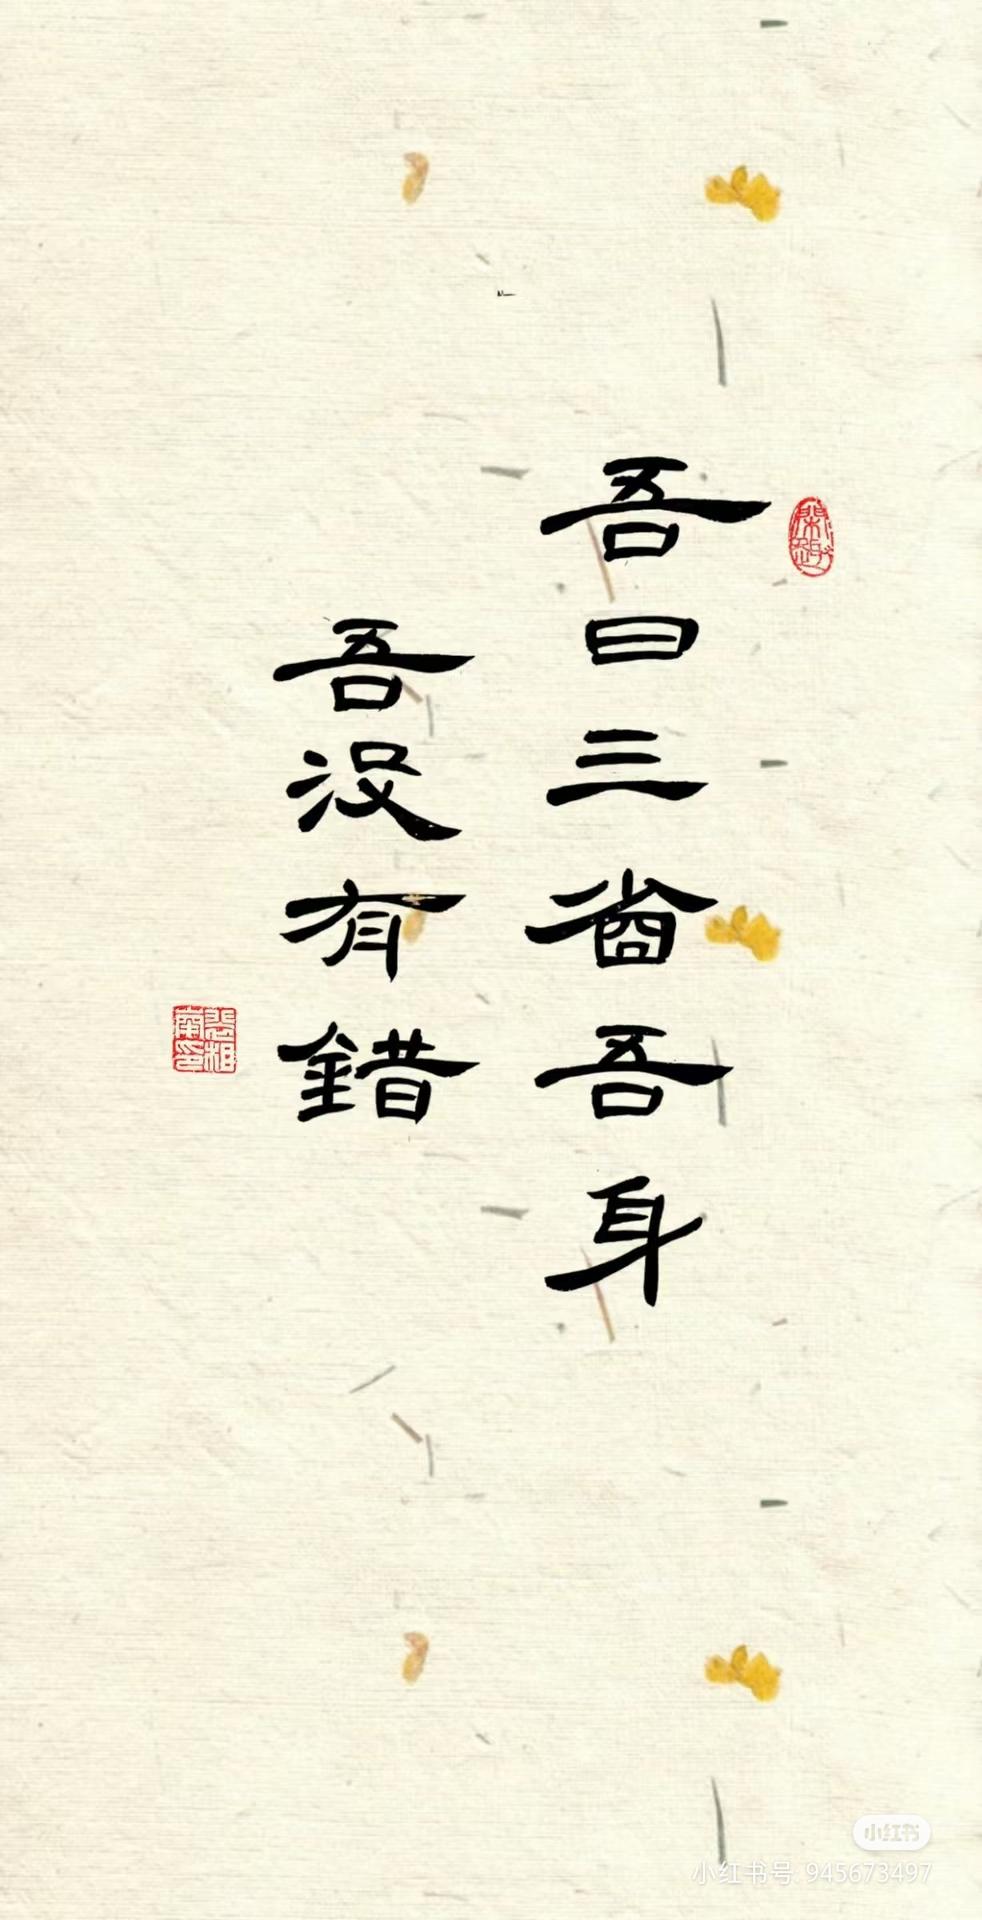 吾日三省吾身
吾没有錯
小红书
小红书号: 945673497